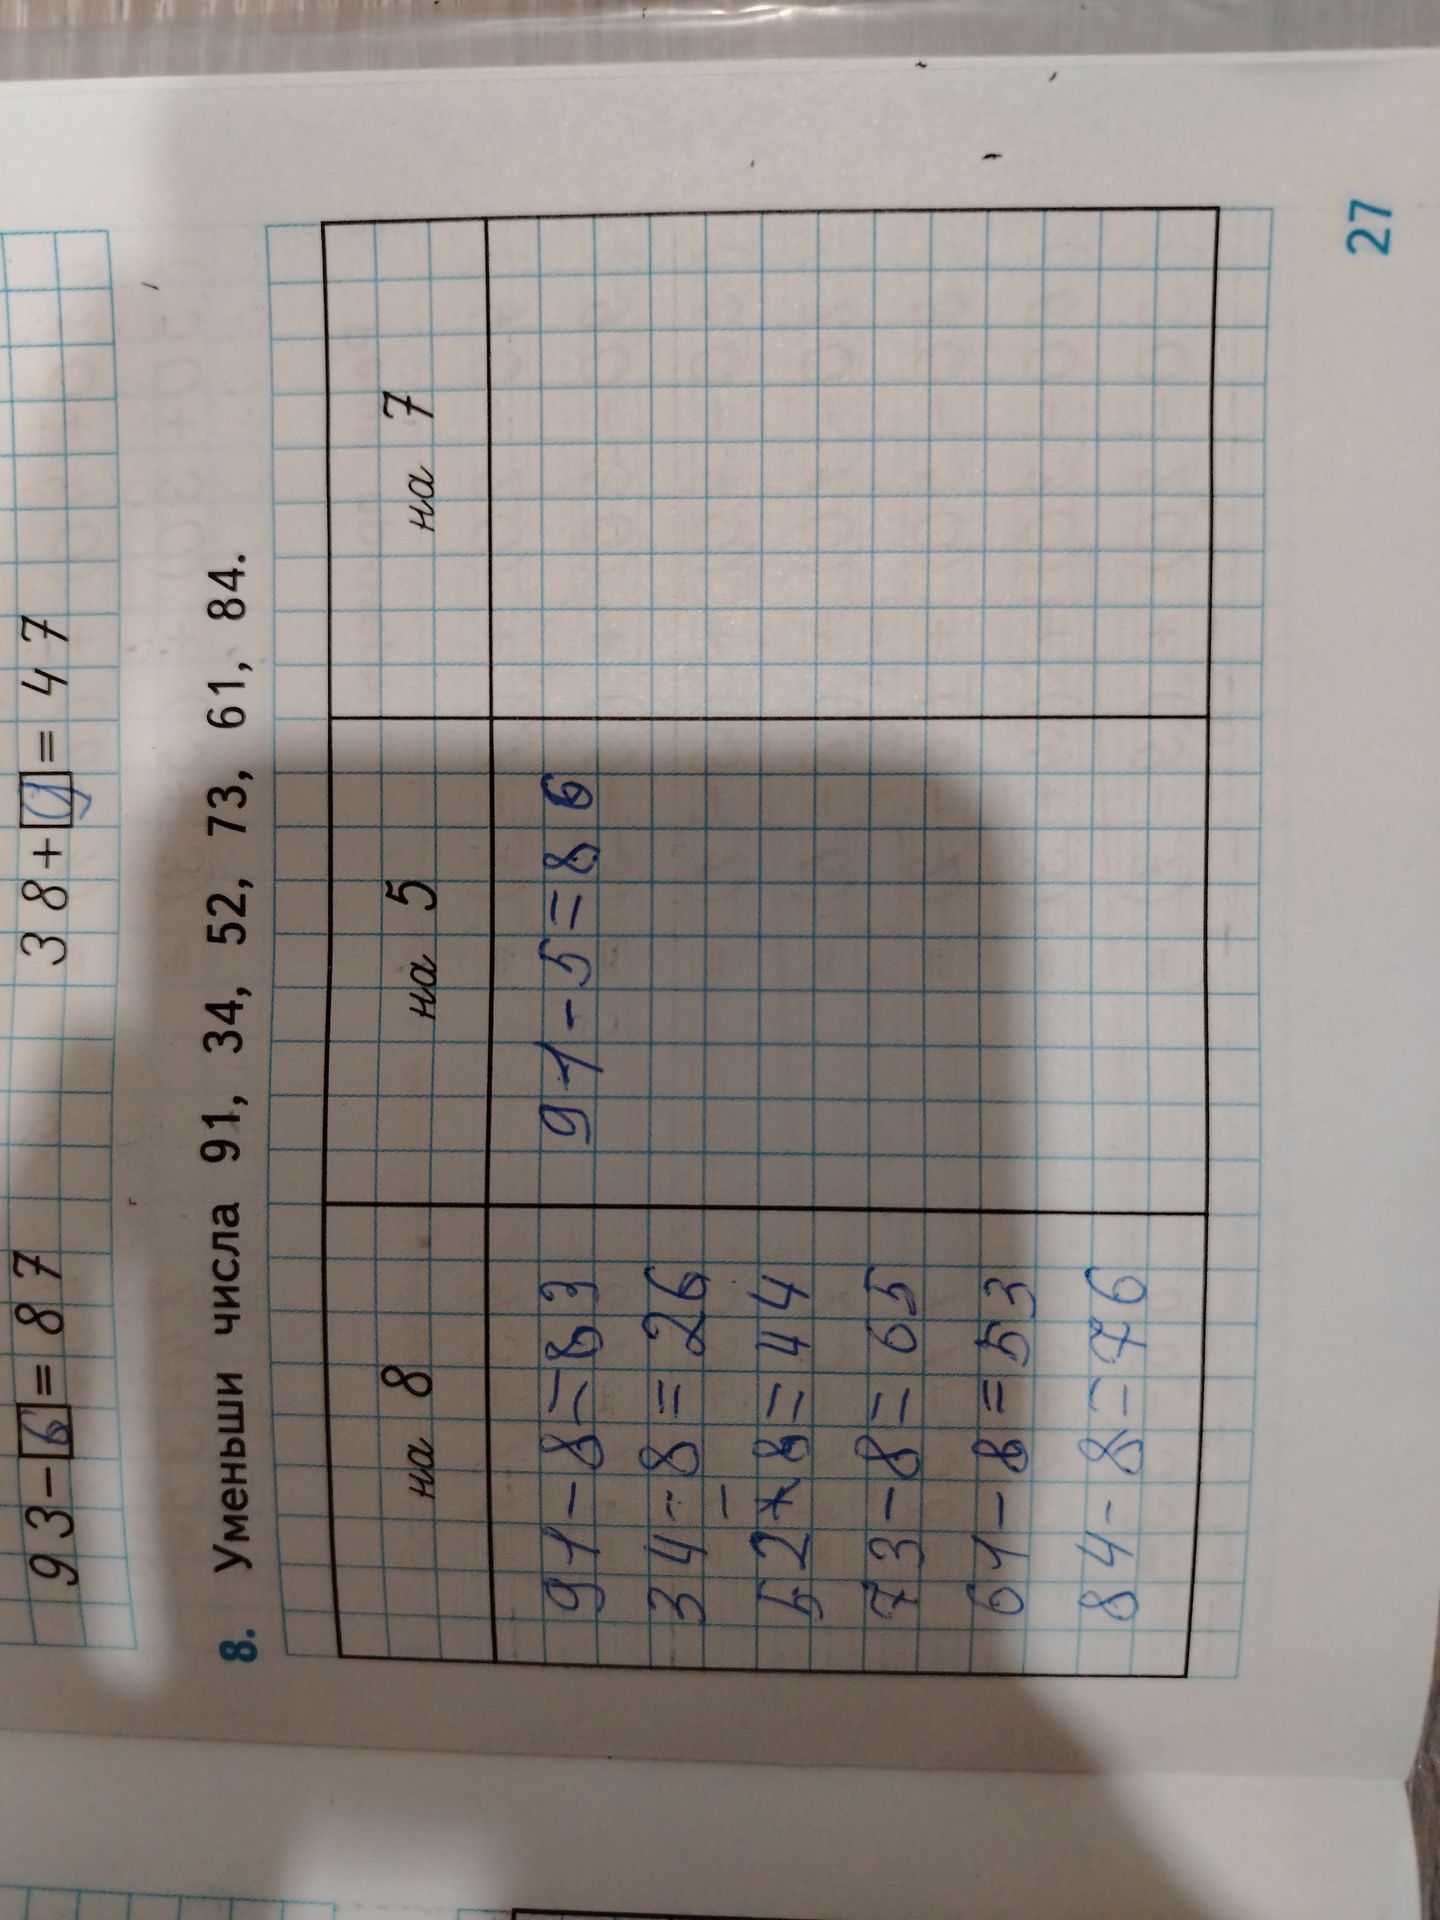 93-6=87 38+9=47
8. Уменьши числа 91, 34, 52, 73, 61, 84.
на 8 на 5 на 7
91-8=83 91-5=86
34-8=26
52-8=44
73-8=65
61-8=53
84-8=76
27